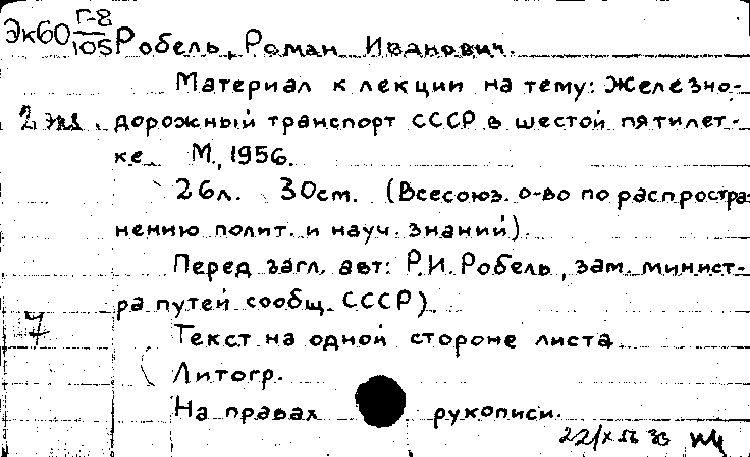 Эк60 Г-8/105 Робель, Роман Иванович.
Материал к лекции на тему: Железно-
2 экз. дорожный транспорт СССР в шестой пятилет-
ке. М., 1956.
26л. 30см. (Всесоюз. о-во по распростра-
нению полит. и науч. знаний).
Перед загл. авт: Р.И. Робель, зам. минист-
ра путей сообщ. СССР)
7
Текст на одной стороне листа
Литогр.
На правах рукописи.
22/X